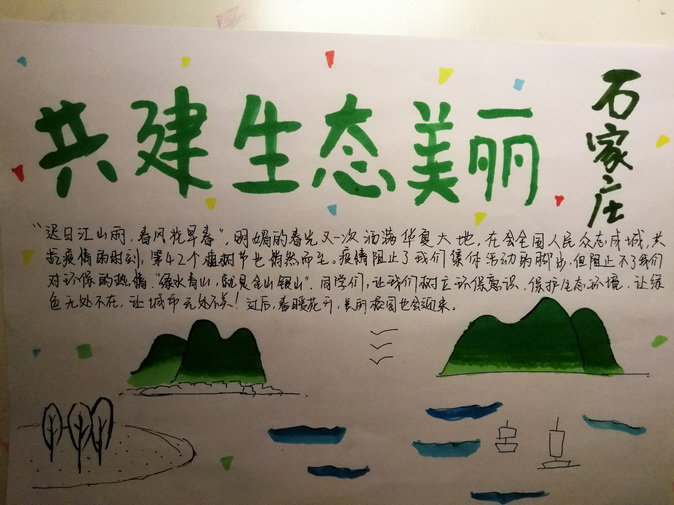 共建生态美丽
石家庄
"迟日江山丽,春风花草香",明媚的春光又一次洒满华夏大地,在全国人民众志成城,共
抗疫情的时刻,第42个植树节也悄然而至。疫情阻止了我们集体活动的脚步,但阻止不了我们
对环保的热情。"绿水青山,就是金山银山"。同学们,让我们树立环保意识,保护生态环境,让绿
色无处不在,让城市无处不美!过后,春暖花开,美丽校园也会迎来。